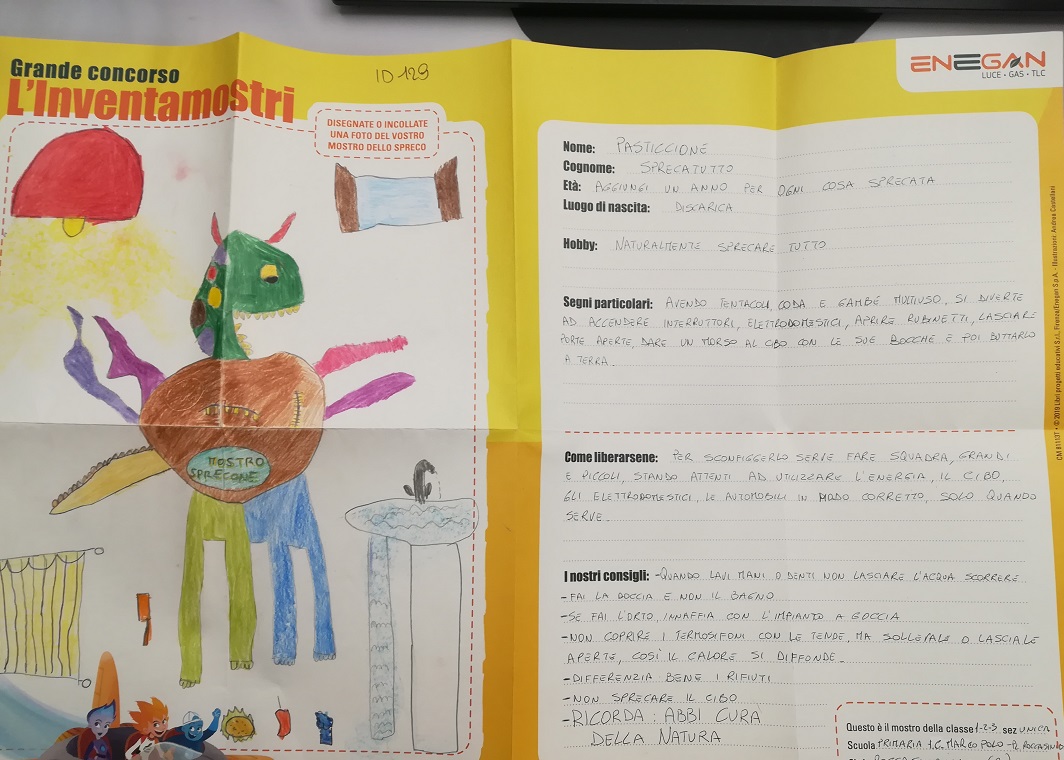 Grande concorso
L'Inventamostri
ID 129
DISEGNATE O INCOLLATE
UNA FOTO DEL VOSTRO
MOSTRO DELLO SPRECO
MOSTRO
SPRECONE
ENEGAN
LUCE • GAS • TLC
Nome: PASTICCIONE
Cognome: SPRECATUTTO
Età: AGGIUNGI UN ANNO PER OGNI COSA SPRECATA
Luogo di nascita: DISCARICA
Hobby: NATURALMENTE SPRECARE TUTTO
Segni particolari: AVENDO TENTACOLI, CODA E GAMBE MULTIUSO, SI DIVERTE
AD ACCENDERE INTERRUTTORI, ELETTRODOMESTICI, APRIRE RUBINETTI, LASCIARE
PORTE APERTE, DARE UN MORSO AL CIBO CON LE SUE BOCCHE E POI BUTTARLO
A TERRA.
Come liberarsene: PER SCONFIGGERLO SERVE FARE SQUADRA, GRANDI
E PICCOLI, STANDO ATTENTI AD UTILIZZARE L'ENERGIA, IL CIBO,
GLI ELETTRODOMESTICI, LE AUTOMOBILI IN MODO CORRETTO, SOLO QUANDO
SERVE.
I nostri consigli: -QUANDO LAVI MANI O DENTI NON LASCIARE L'ACQUA SCORRERE
-FAI LA DOCCIA E NON IL BAGNO
-SE FAI L'ORTO INNAFFIA CON L'IMPIANTO A GOCCIA
-NON COPRIRE I TERMOSIFONI CON LE TENDE, MA SOLLEVALE O LASCIALE
APERTE, COSÌ IL CALORE SI DIFFONDE.
-DIFFERENZIA BENE I RIFIUTI
-NON SPRECARE IL CIBO
-RICORDA: ABBI CURA
DELLA NATURA
Questo è il mostro della classe 1-2-3 sez UNICA
Scuola PRIMARIA I.C. MARCO POLO
© 2019 Librì progetti educativi S.r.l., Firenze/Enegan S.p.A. - Illustrazioni: Andrea Castellani